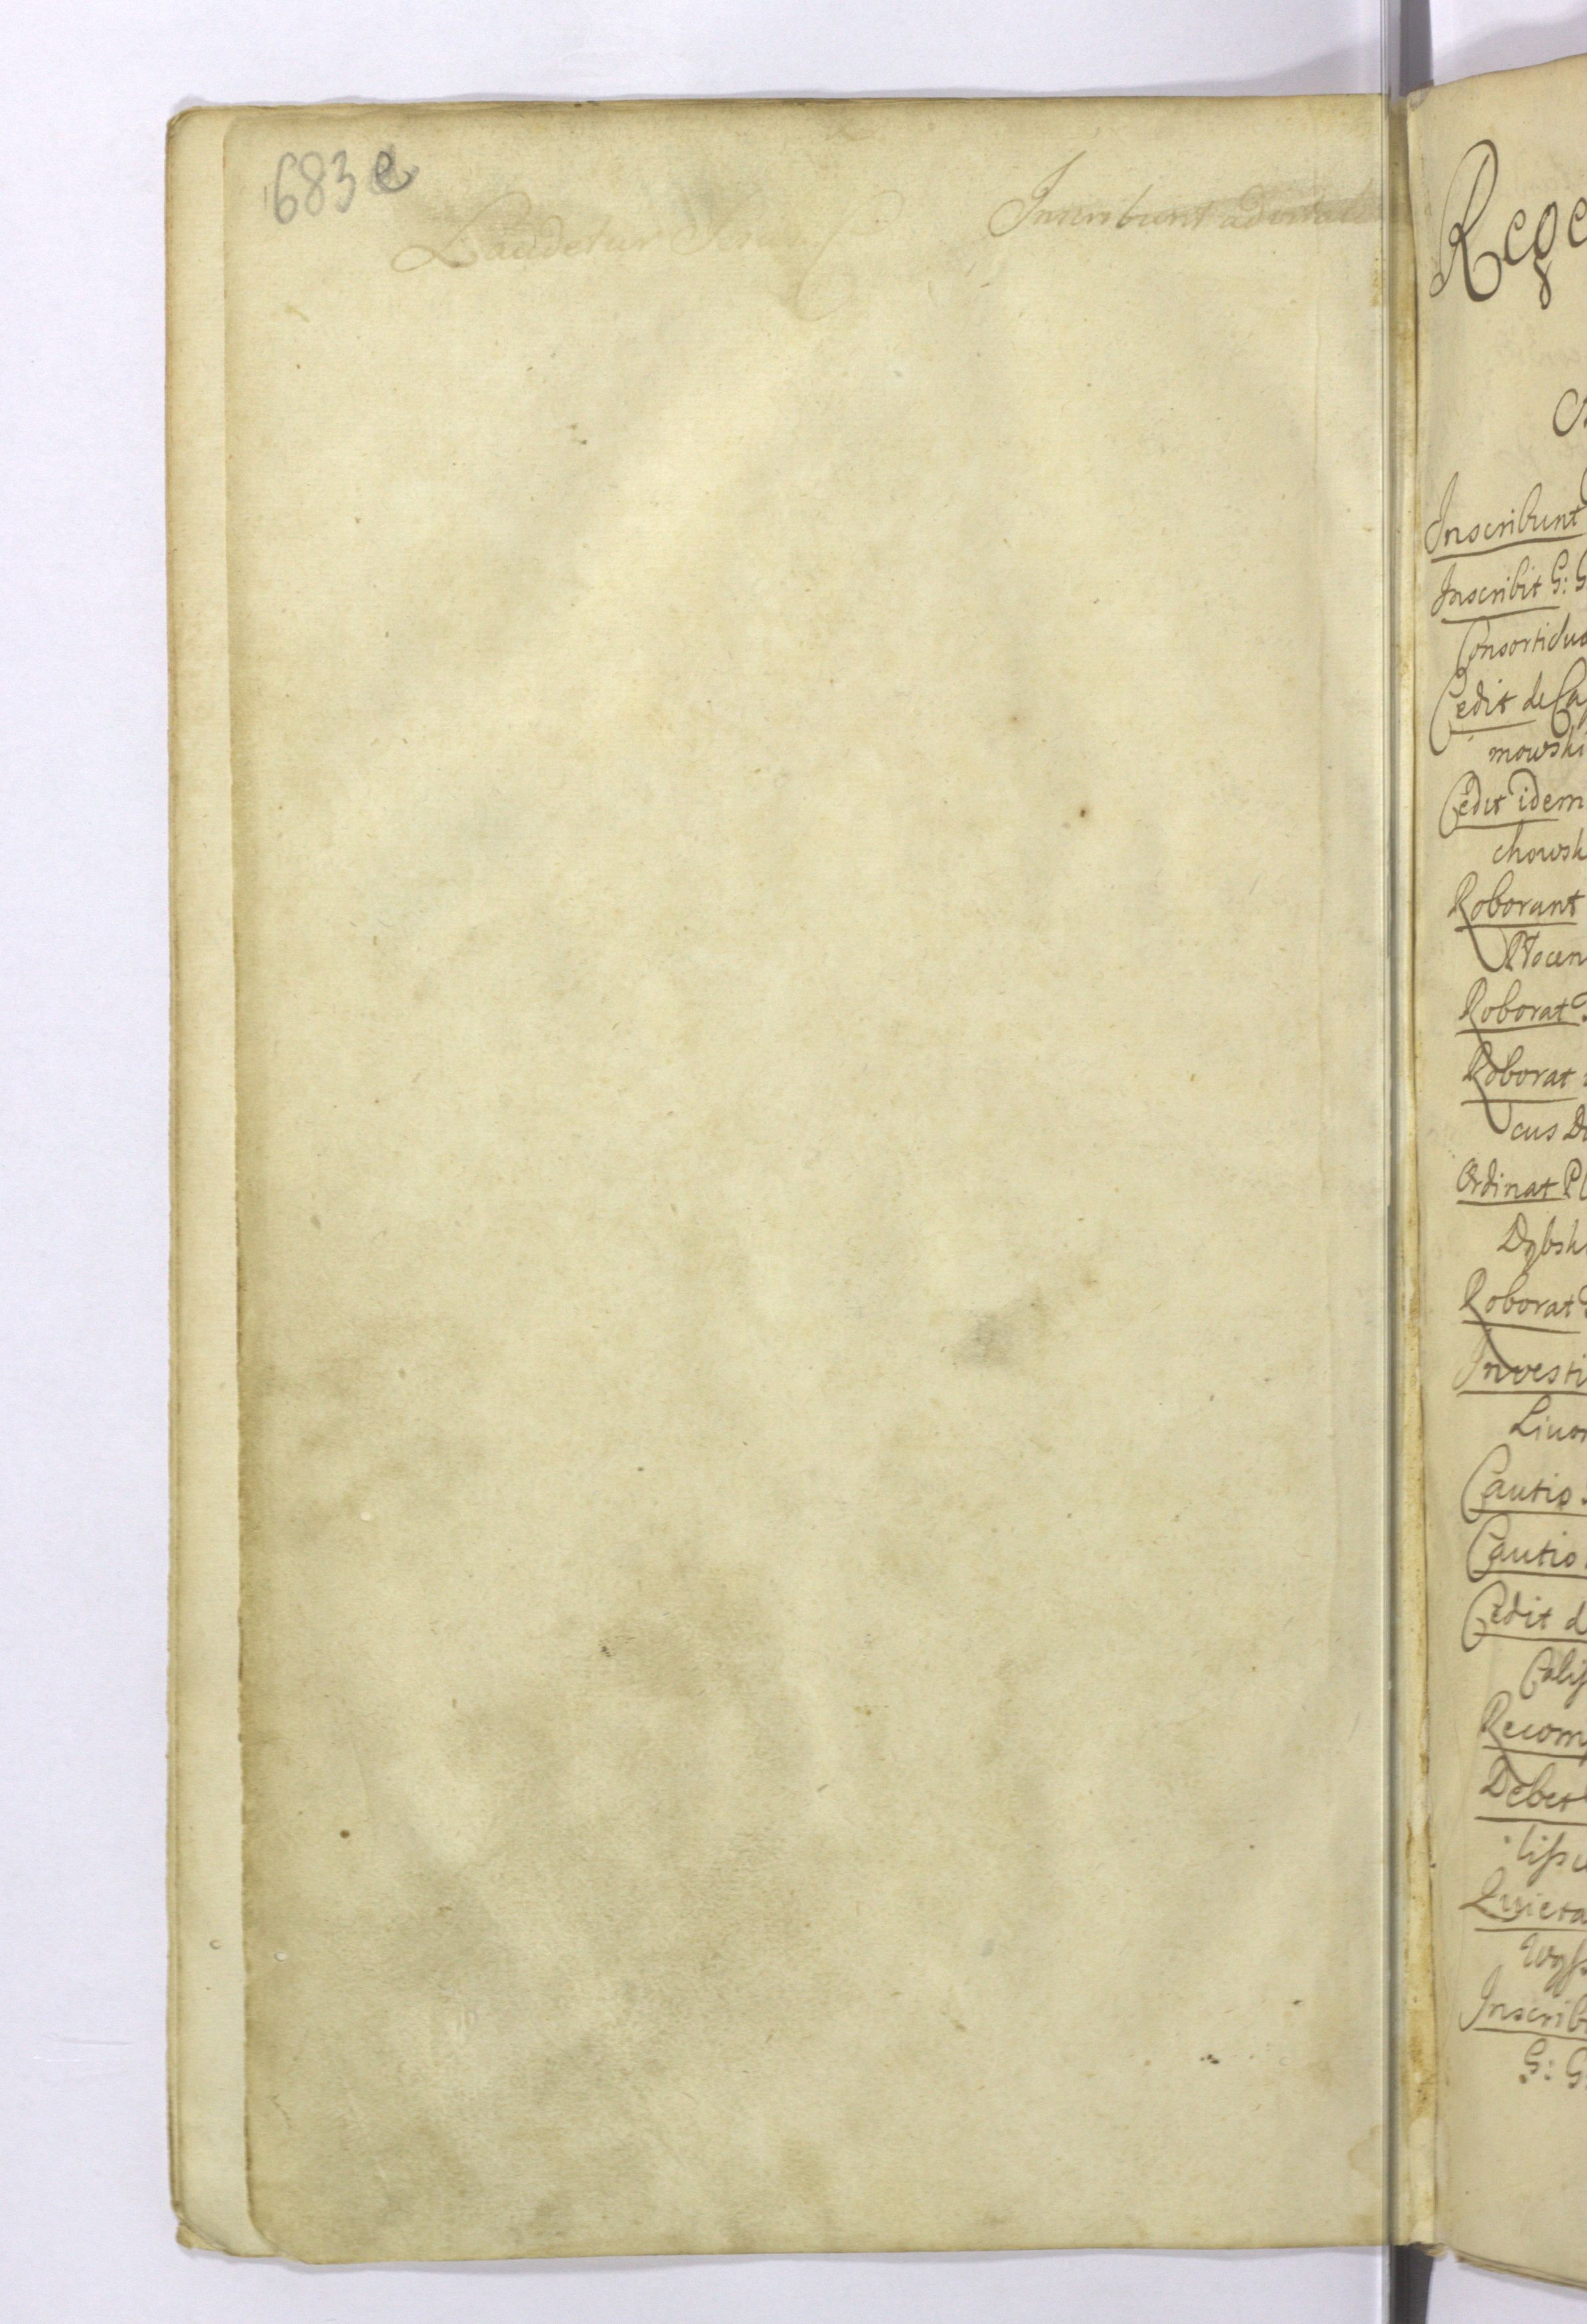 683 e
Laudetur Jesus
Inscribunt
Rege
Inscribunt
Inscribit G: G
Consortibus
Cedit de Ca
mowski
Cedit idem
chowsk
Roborant
Plocen
Roborat
Roborat
cus D
Ordinat Pl
Dąbsk
Roborat
Investi
Livon
Cautio
Cautio
Cedit d
Calis
Recom
Debet
Quieta
Inscrib
G: G